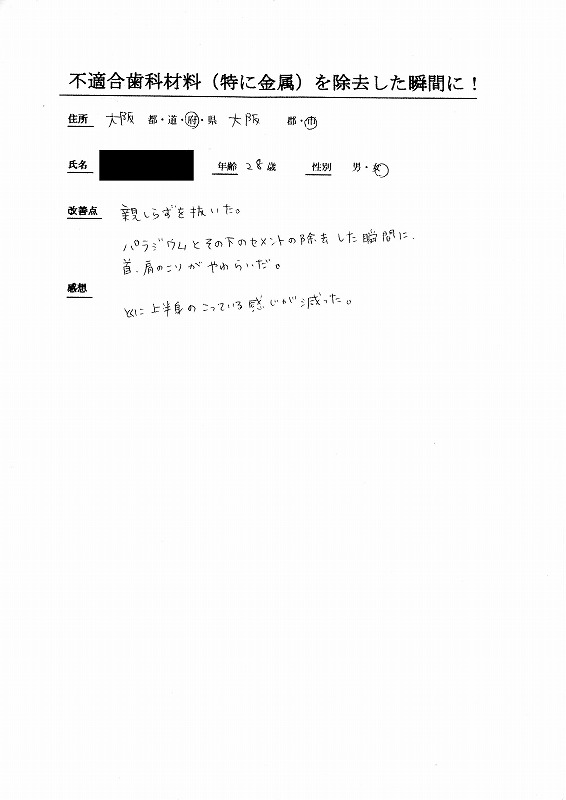 不適合歯科材料（特に金属）を除去した瞬間に！
住所 大阪 都・道・府・県 大阪 郡・市
氏名 年齢 28歳 性別 男・女
改善点 親しらずを抜いた。
パラジウムとその下のセメントの除去した瞬間に、
首、肩のこりがやわらいだ。
感想
に上半身のこっている感じが減った。